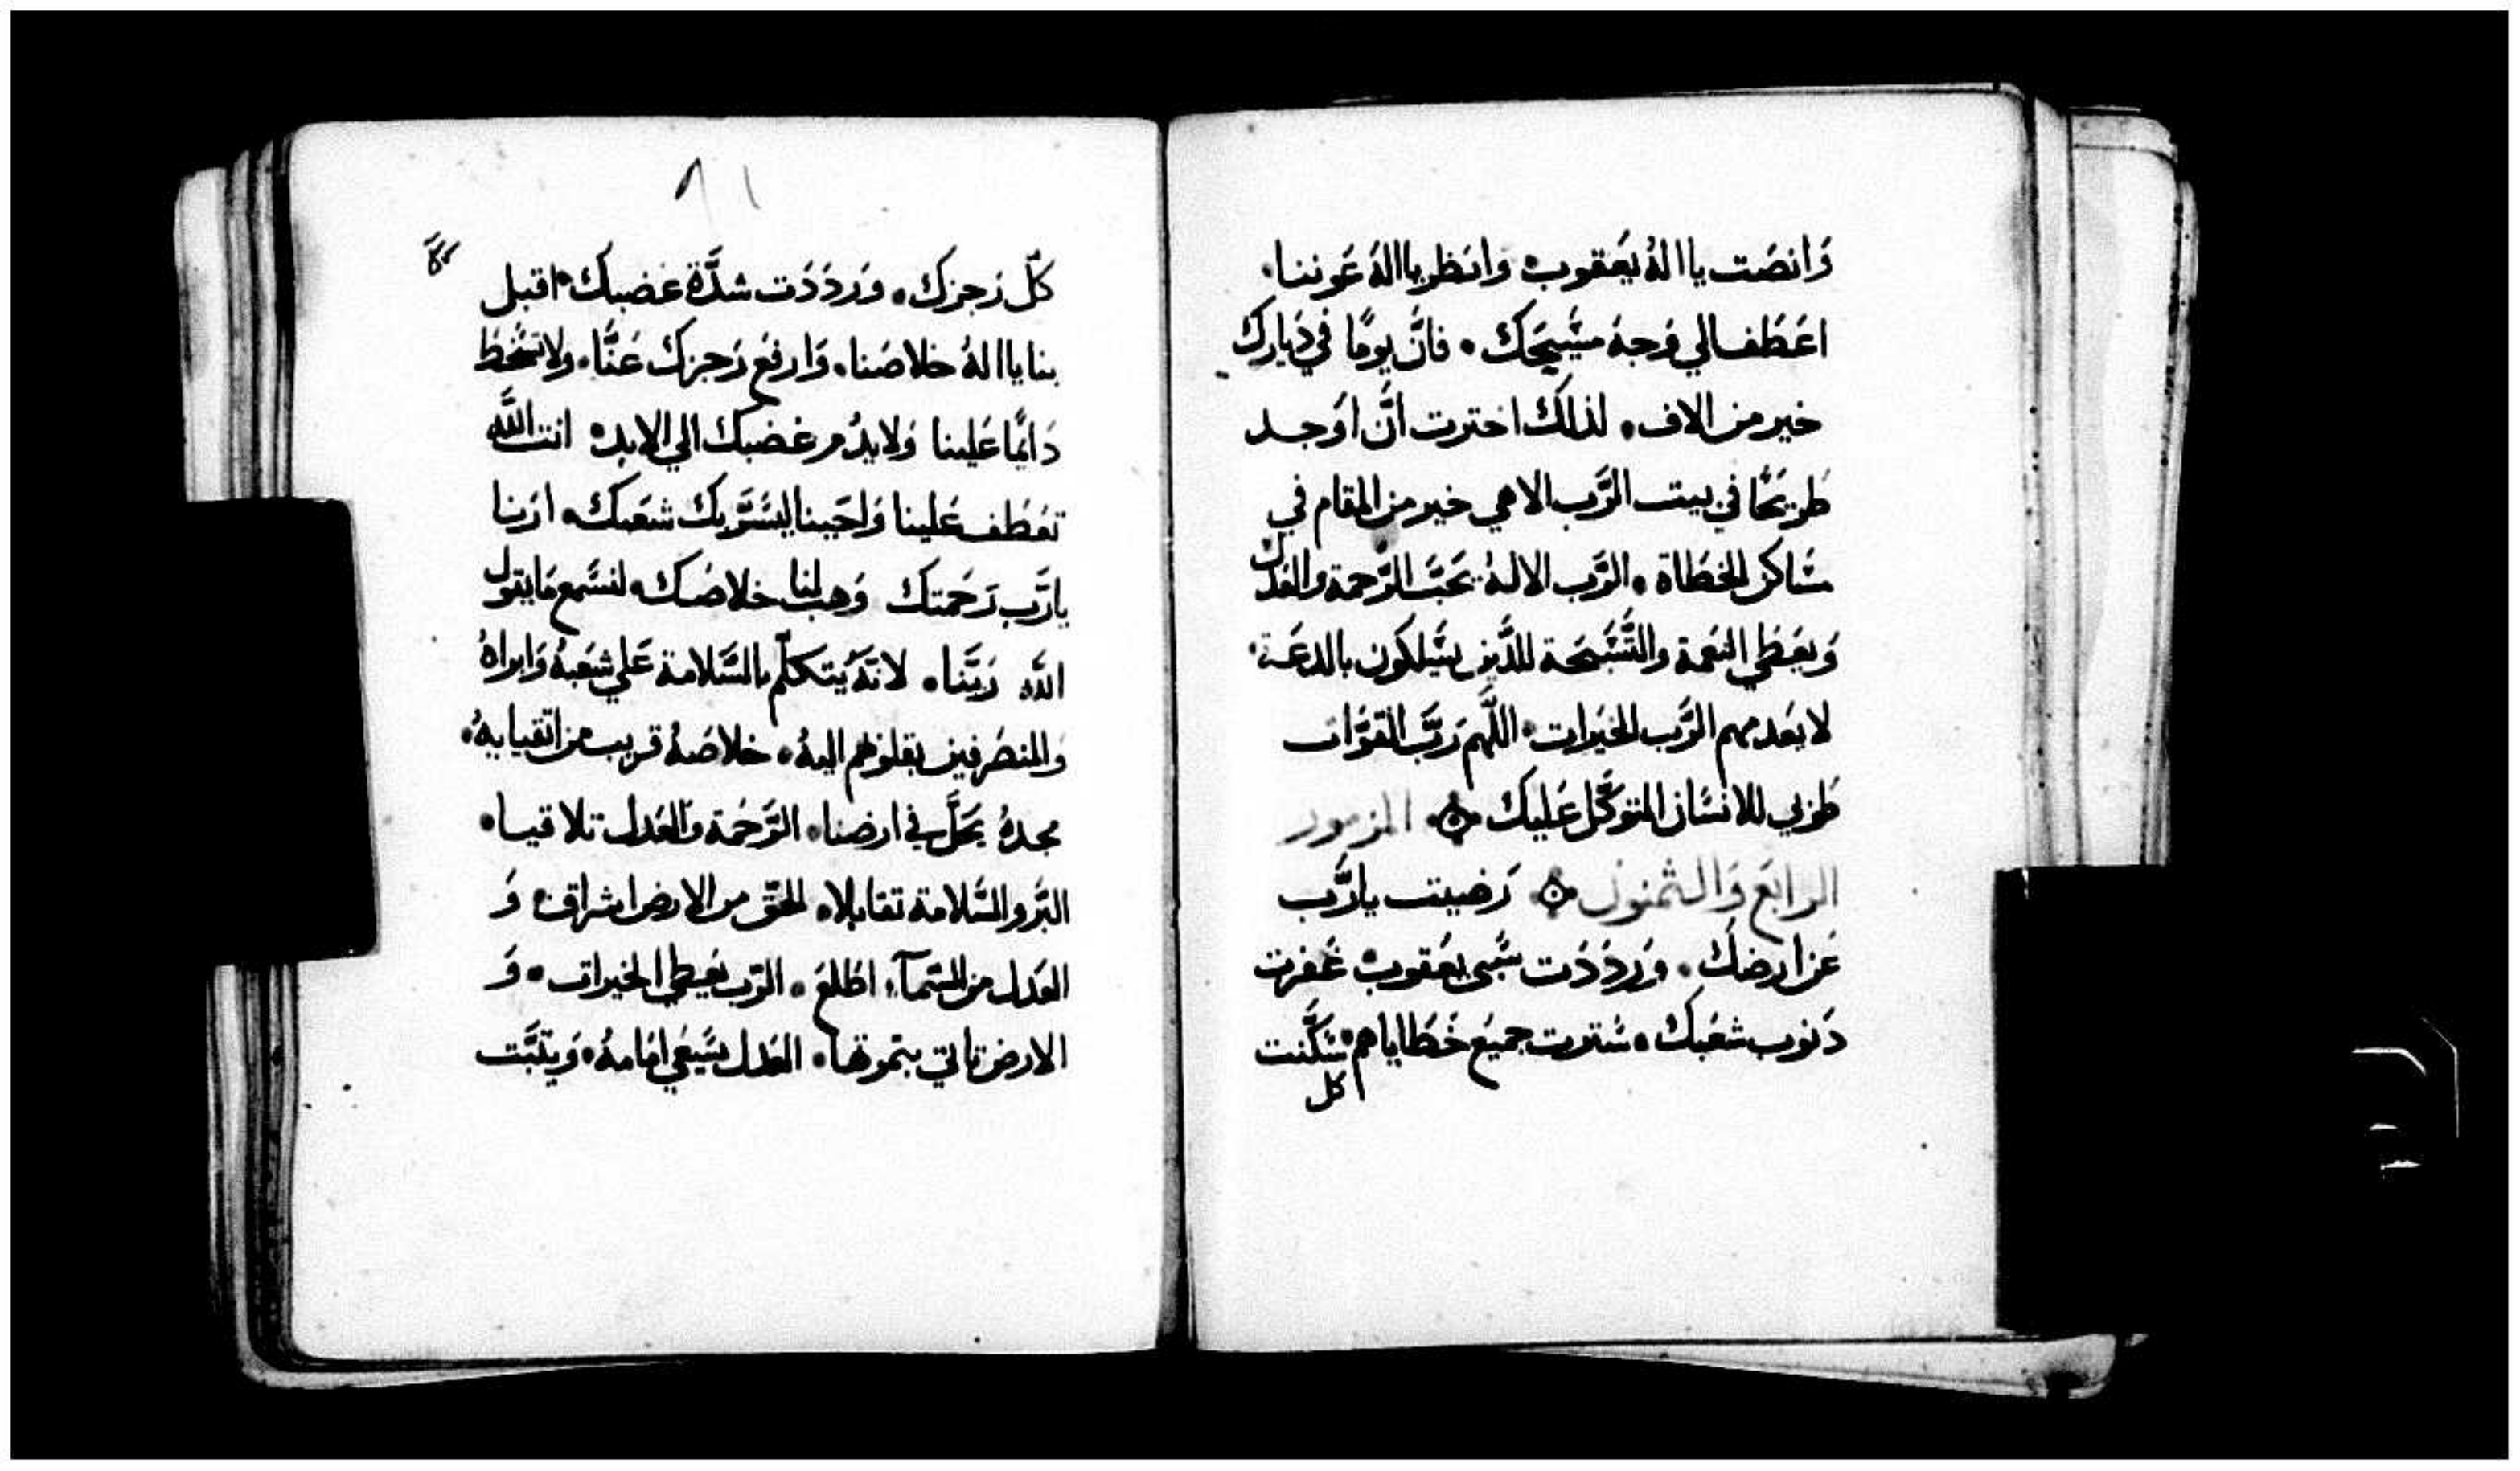 وَانصَت ياالهُ يَعقوب۰ وانظر ياالهَ عَوننا۰
اعَطَف الي وَجهَ مَسِيحَك۰ فانَّ يومًا في دَيارك
خير من الاف۰ لذلك اخترت أنَّ اوَجد
طَريحًا في بيت الرَّب الاهي خير من المقام في
مسَاكن الخطَاة۰ الرَّب الالهُ يحَبّ الرَّحمة والعَدل
وَيعَطي النعَمة والتَّسبَحَة للذَّين يسَّلكون بالدعَة۰
لا يعَدمهم الرَّب الخيَرات۰ اللَّهم رَبَّ القوَّات
طوَبي للانسَان المتوكَّل عَليك۰ المزمور
الرابَع وَالثمنون۰ رَضيت يارَّب
عَن ارضكَ۰ ورَددَت سَّبي يعَقوب۰ غَفرت
دَنوب شعَبك۰ سَترت جميَع خَطاياهم۰ سَكَّنت
كل
٩١
كلّ رَجزك۰ ورَددَت شدَّة غضبك۰ اقبل
بنا ياالهُ خلاصَنا۰ وَارفَع رَجزك عَنَّا۰ ولا تسَخط
دَايمًا عَلينا وَلا يدُم غضبك الي الابد۰ انت اللَّه
تعَطف عَلينا وَاحَيينا ليسَرَّ بك شعَبك۰ ارَنا
يارَّب رَحَمتك وَهب لنا خلاصَك۰ لنسَمع مَا يقول
اللَّه رَبَّنا۰ لانَّهُ يَتكلَّم بالسَّلامة عَلي شعَبهُ وَابراهُ
وَالمنصَرفين بقلوَبهم اليهُ۰ خلاصَهُ قريب من اتَقيايهُ۰
مجدهُ يحَلَّ في ارضنا۰ الرَّحَمة والعَدل تلاقيا۰
البَّر والسَّلامة تقابلا۰ الحَقّ من الارض اشراق۰ وَ
العَدل من السَّمآء اطَلعَ۰ الرَّب يعَطي الخيرات۰ وَ
الارض تاتي بثَموتها۰ العَدل يسَّعي امَامهُ۰ وَيثبَّت